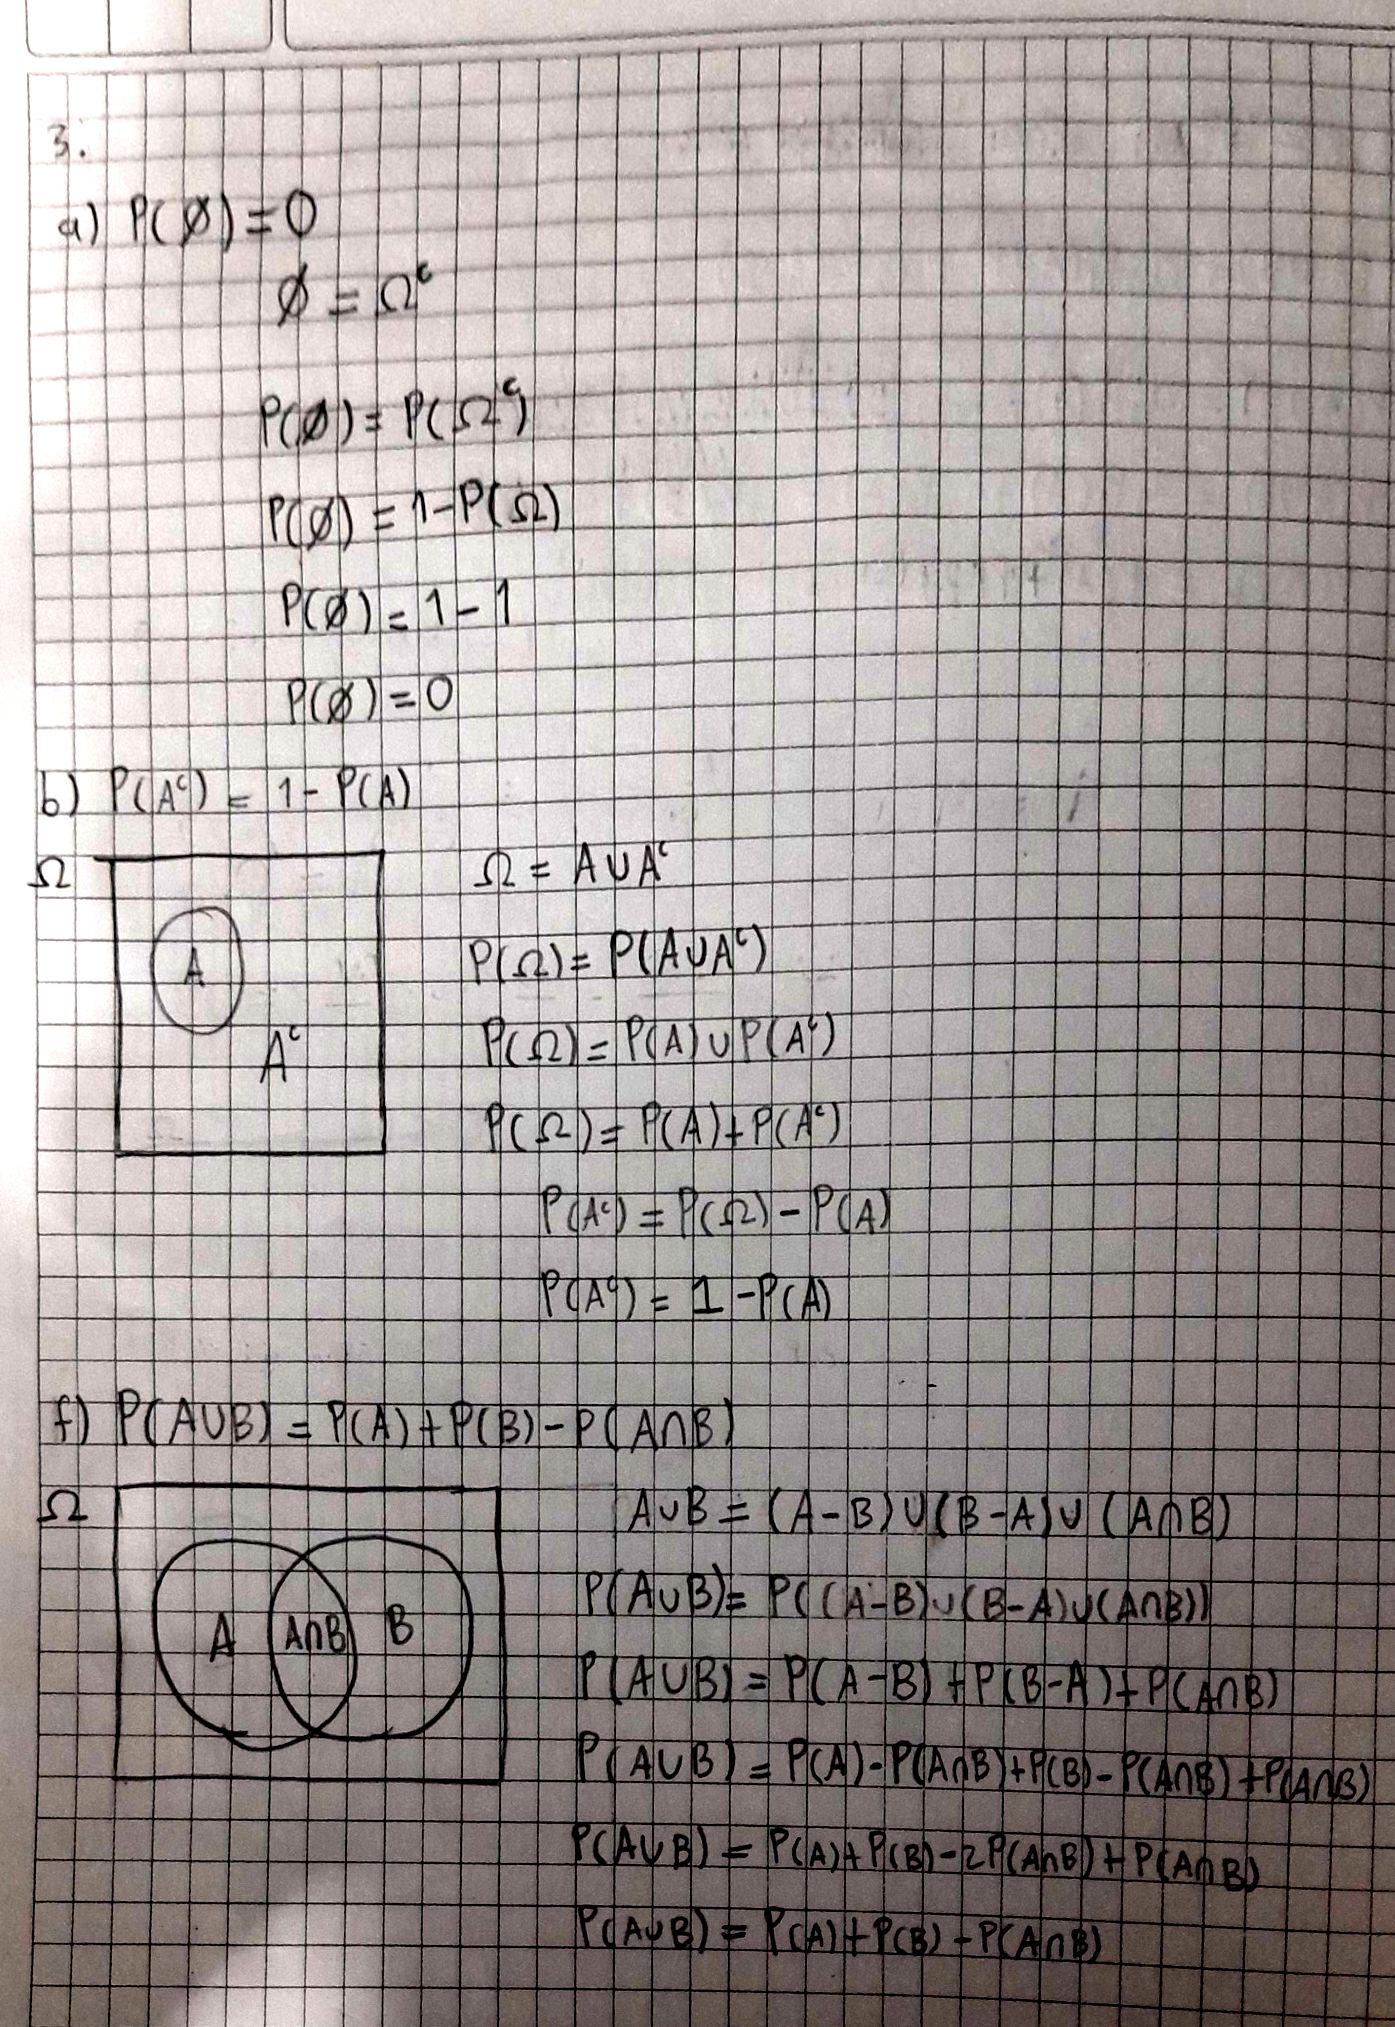 3.
a) P(Ø) = 0
Ø = Ωᶜ
P(Ø) = P(Ωᶜ)
P(Ø) = 1 - P(Ω)
P(Ø) = 1 - 1
P(Ø) = 0
b) P(Aᶜ) = 1 - P(A)
Ω
A
Aᶜ
Ω = A∪Aᶜ
P(Ω) = P(A∪Aᶜ)
P(Ω) = P(A) ∪ P(Aᶜ)
P(Ω) = P(A) + P(Aᶜ)
P(Aᶜ) = P(Ω) - P(A)
P(Aᶜ) = 1 - P(A)
f) P(A∪B) = P(A) + P(B) - P(A∩B)
Ω
A A∩B B
A∪B = (A-B) ∪ (B-A) ∪ (A∩B)
P(A∪B) = P((A-B) ∪ (B-A) ∪ (A∩B))
P(A∪B) = P(A-B) + P(B-A) + P(A∩B)
P(A∪B) = P(A) - P(A∩B) + P(B) - P(A∩B) + P(A∩B)
P(A∪B) = P(A) + P(B) - 2P(A∩B) + P(A∩B)
P(A∪B) = P(A) + P(B) - P(A∩B)